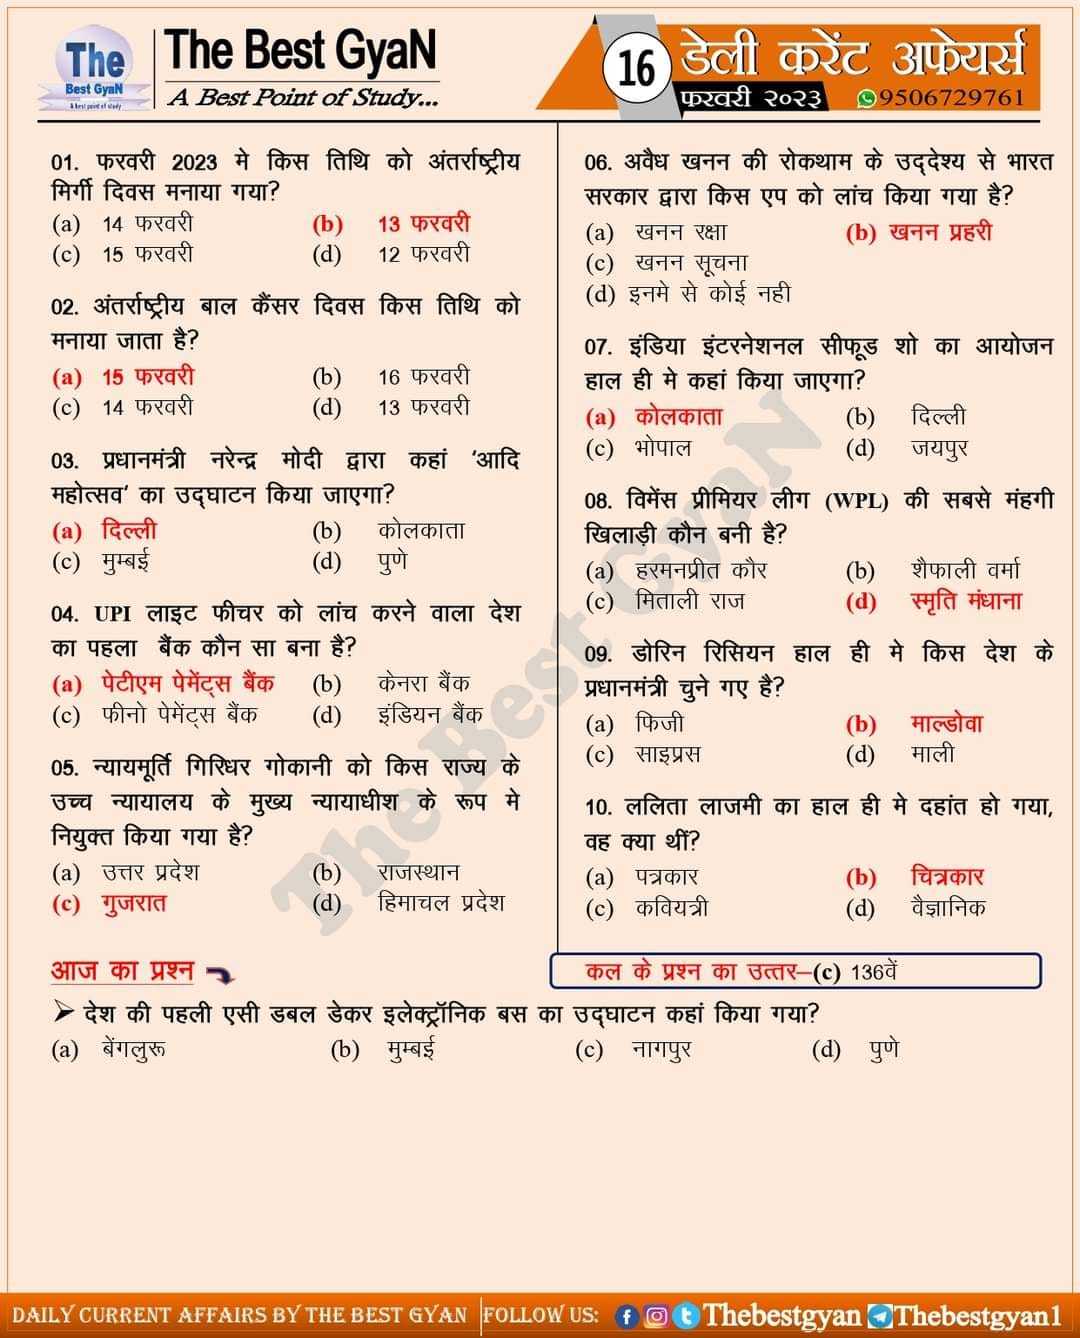 The Best GyaN
The
Best GyaN
A best point of study
A Best Point of Study...
16
डेली करेंट अफेयर्स
फरवरी २०२३
9506729761
01. फरवरी 2023 मे किस तिथि को अंतर्राष्ट्रीय
मिर्गी दिवस मनाया गया?
(a) 14 फरवरी (b) 13 फरवरी
(c) 15 फरवरी (d) 12 फरवरी
02. अंतर्राष्ट्रीय बाल कैंसर दिवस किस तिथि को
मनाया जाता है?
(a) 15 फरवरी (b) 16 फरवरी
(c) 14 फरवरी (d) 13 फरवरी
03. प्रधानमंत्री नरेन्द्र मोदी द्वारा कहां ‘आदि
महोत्सव’ का उद्घाटन किया जाएगा?
(a) दिल्ली (b) कोलकाता
(c) मुम्बई (d) पुणे
04. UPI लाइट फीचर को लांच करने वाला देश
का पहला बैंक कौन सा बना है?
(a) पेटीएम पेमेंट्स बैंक (b) केनरा बैंक
(c) फीनो पेमेंट्स बैंक (d) इंडियन बैंक
05. न्यायमूर्ति गिरिधर गोकानी को किस राज्य के
उच्च न्यायालय के मुख्य न्यायाधीश के रूप मे
नियुक्त किया गया है?
(a) उत्तर प्रदेश (b) राजस्थान
(c) गुजरात (d) हिमाचल प्रदेश
06. अवैध खनन की रोकथाम के उद्देश्य से भारत
सरकार द्वारा किस एप को लांच किया गया है?
(a) खनन रक्षा (b) खनन प्रहरी
(c) खनन सूचना
(d) इनमे से कोई नही
07. इंडिया इंटरनेशनल सीफूड शो का आयोजन
हाल ही मे कहां किया जाएगा?
(a) कोलकाता (b) दिल्ली
(c) भोपाल (d) जयपुर
08. विमेंस प्रीमियर लीग (WPL) की सबसे मंहगी
खिलाड़ी कौन बनी है?
(a) हरमनप्रीत कौर (b) शैफाली वर्मा
(c) मिताली राज (d) स्मृति मंधाना
09. डोरिन रिसियन हाल ही मे किस देश के
प्रधानमंत्री चुने गए है?
(a) फिजी (b) माल्डोवा
(c) साइप्रस (d) माली
10. ललिता लाजमी का हाल ही मे दहांत हो गया,
वह क्या थीं?
(a) पत्रकार (b) चित्रकार
(c) कवियत्री (d) वैज्ञानिक
The Best GyaN
आज का प्रश्न
कल के प्रश्न का उत्तर–(c) 136वें
➢ देश की पहली एसी डबल डेकर इलेक्ट्रॉनिक बस का उद्घाटन कहां किया गया?
(a) बेंगलुरू (b) मुम्बई (c) नागपुर (d) पुणे
DAILY CURRENT AFFAIRS BY THE BEST GYAN FOLLOW US: Thebestgyan Thebestgyan1